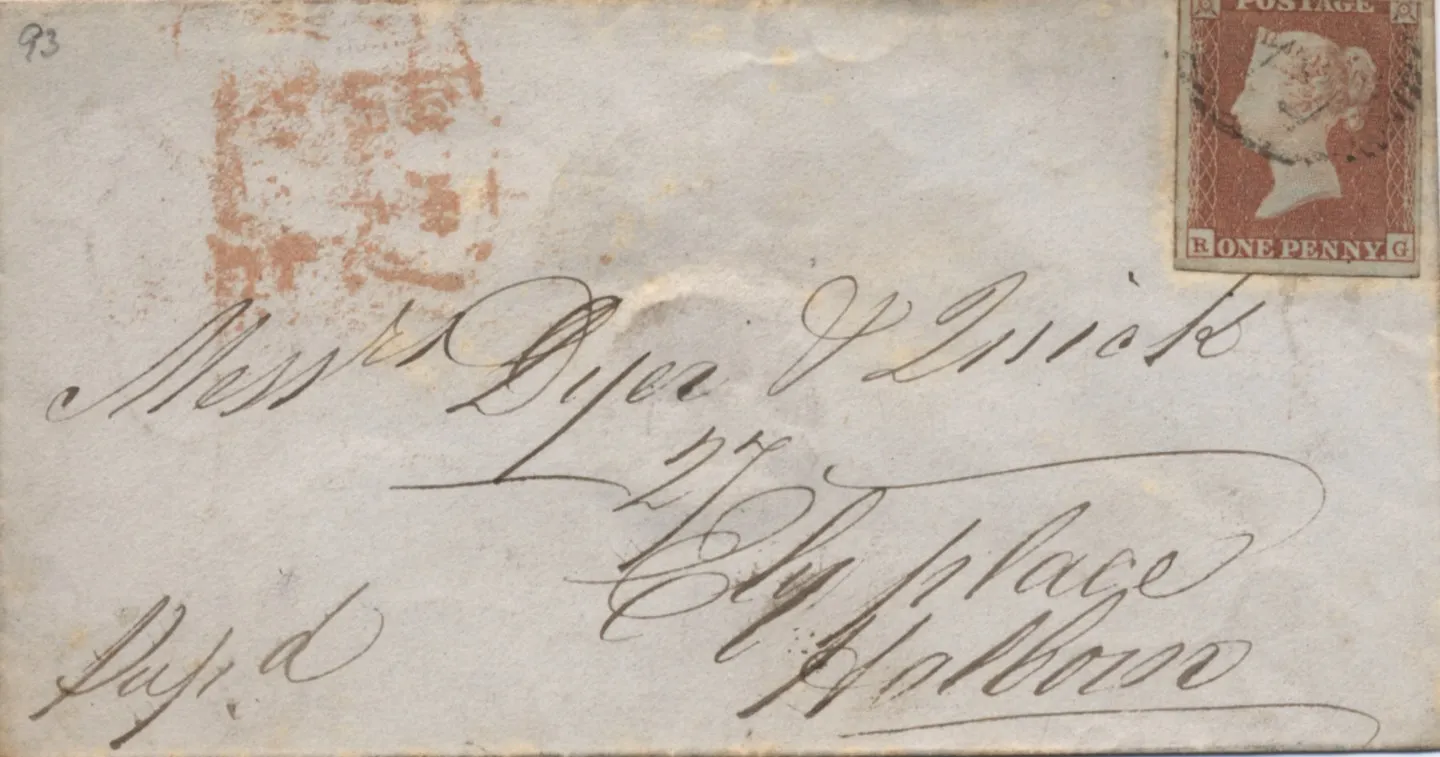 93
POSTAGE
R ONE PENNY. G
Messrs Dyer & Quick
27
Ely place
Holborn